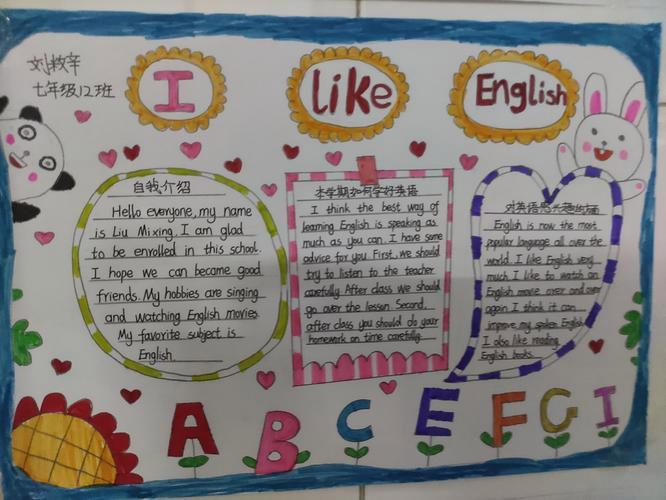 七年级12班
I
like
English
自我介绍
Hello everyone, my name
is Liu Mixing. I am glad
to be enrolled in this school.
I hope we can become good
friends. My hobbies are singing
and watching English movies.
My favorite subject is
English
本学期如何学好英语
I think the best way of
learning English is speaking as
much as you can. I have some
advice for you. First, we should
try to listen to the teacher
carefully. After class we should
go over the lesson. Second,
after class you should do your
homework on time carefully.
English is now the most
popular language all over the
world. I like English very
much. I like to watch an
English movie over and over
again. I think it can
improve my spoken English.
I also like reading
English books.
A B C E F G I